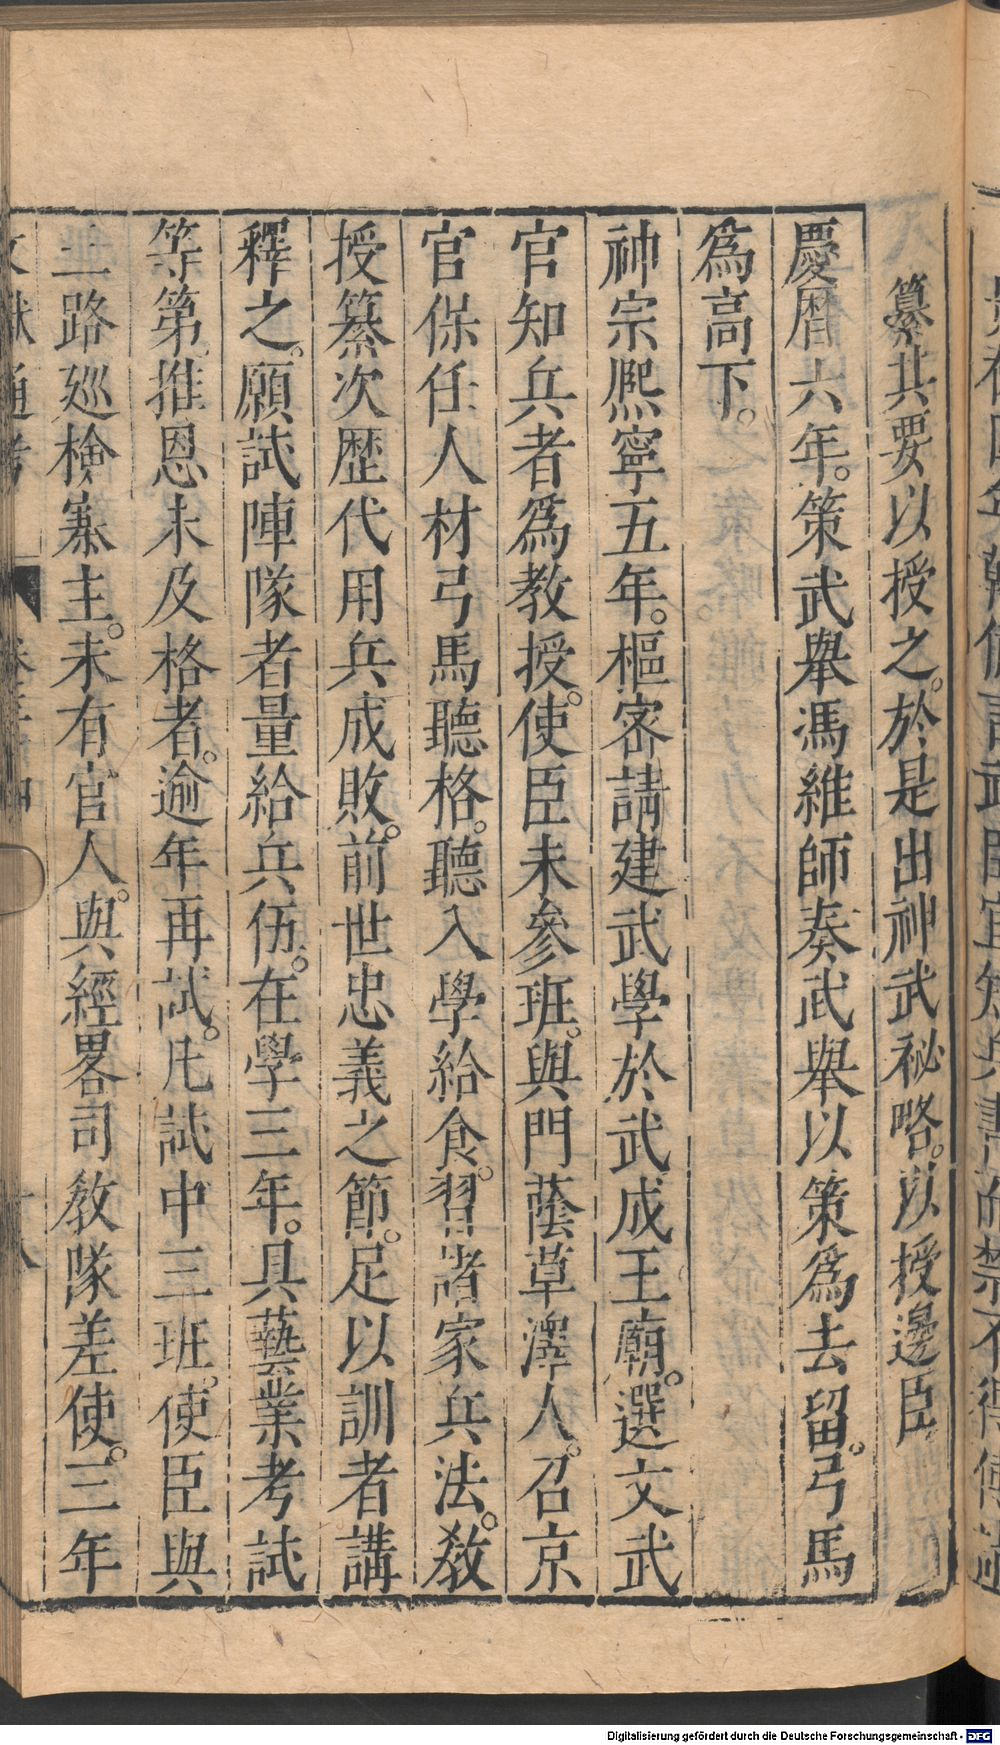 纂其要以授之。於是出神武祕略。以授邊臣
慶曆六年。策武舉馮維師奏武舉以策爲去留。弓馬
爲高下。
神宗熈寧五年。樞宻請建武學於武成王廟。選文武
官知兵者爲教授。使臣未參班。與門蔭草澤人。召京
官保任人材弓馬聽格。聽入學給食。習諸家兵法。敎
授纂次歷代用兵成敗。前世忠義之節。足以訓者講
釋之。願試陣隊者量給兵伍。在學三年。具藝業考試
等第。推恩未及格者。逾年再試。凡試中三班。使臣與
三路廵檢寨主。未有官人。與經畧司教隊差使。三年
文獻通考 卷三十四 十八
Digitalisierung gefördert durch die Deutsche Forschungsgemeinschaft - DFG